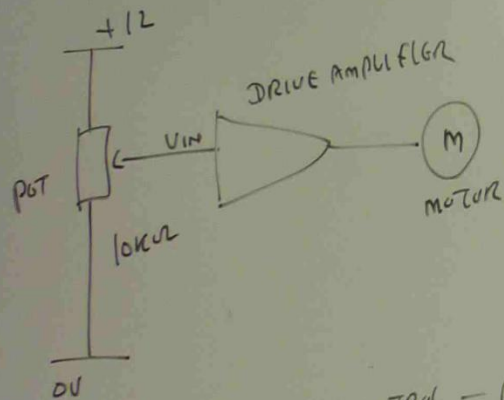 +12
DRIVE AMPLIFIER
VIN
M
POT
MOTOR
10KΩ
0V